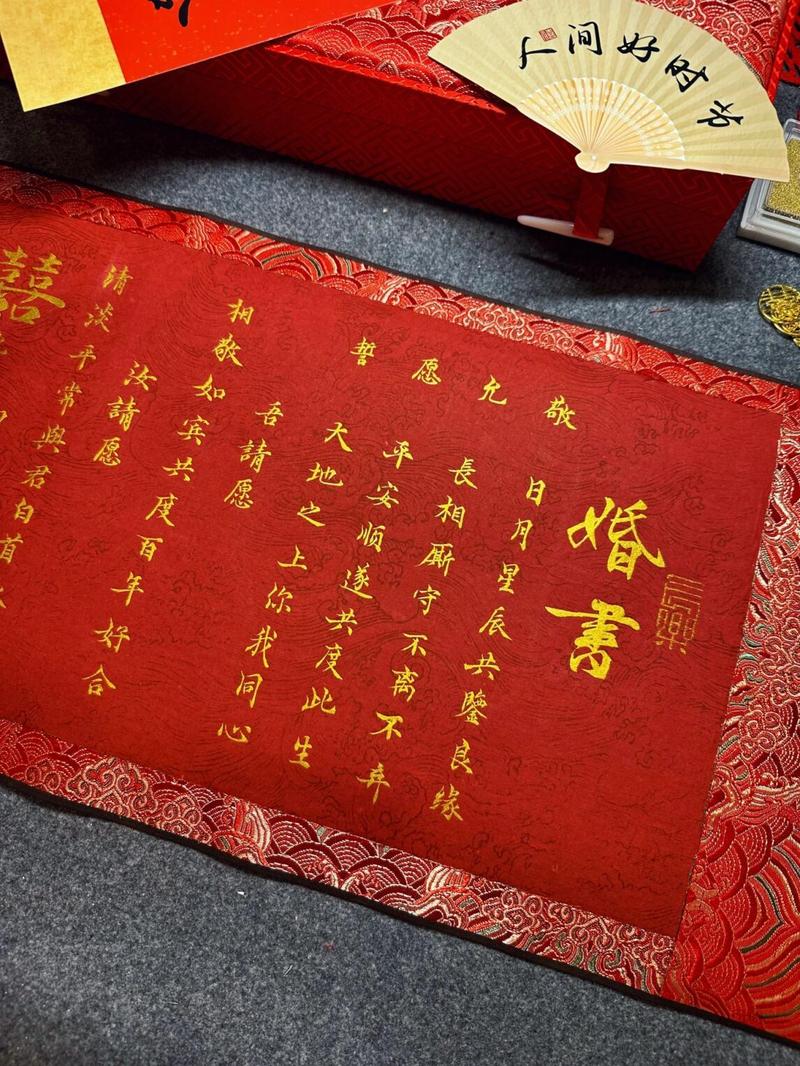 人间好时节
婚書
敬允愿誓
日月星辰共鑒良缘
長相厮守不離不弃
平安順遂共度此生
大地之上你我同心
吾請愿
相敬如宾共度百年好合
汝請愿
清淡平常與君白首
囍